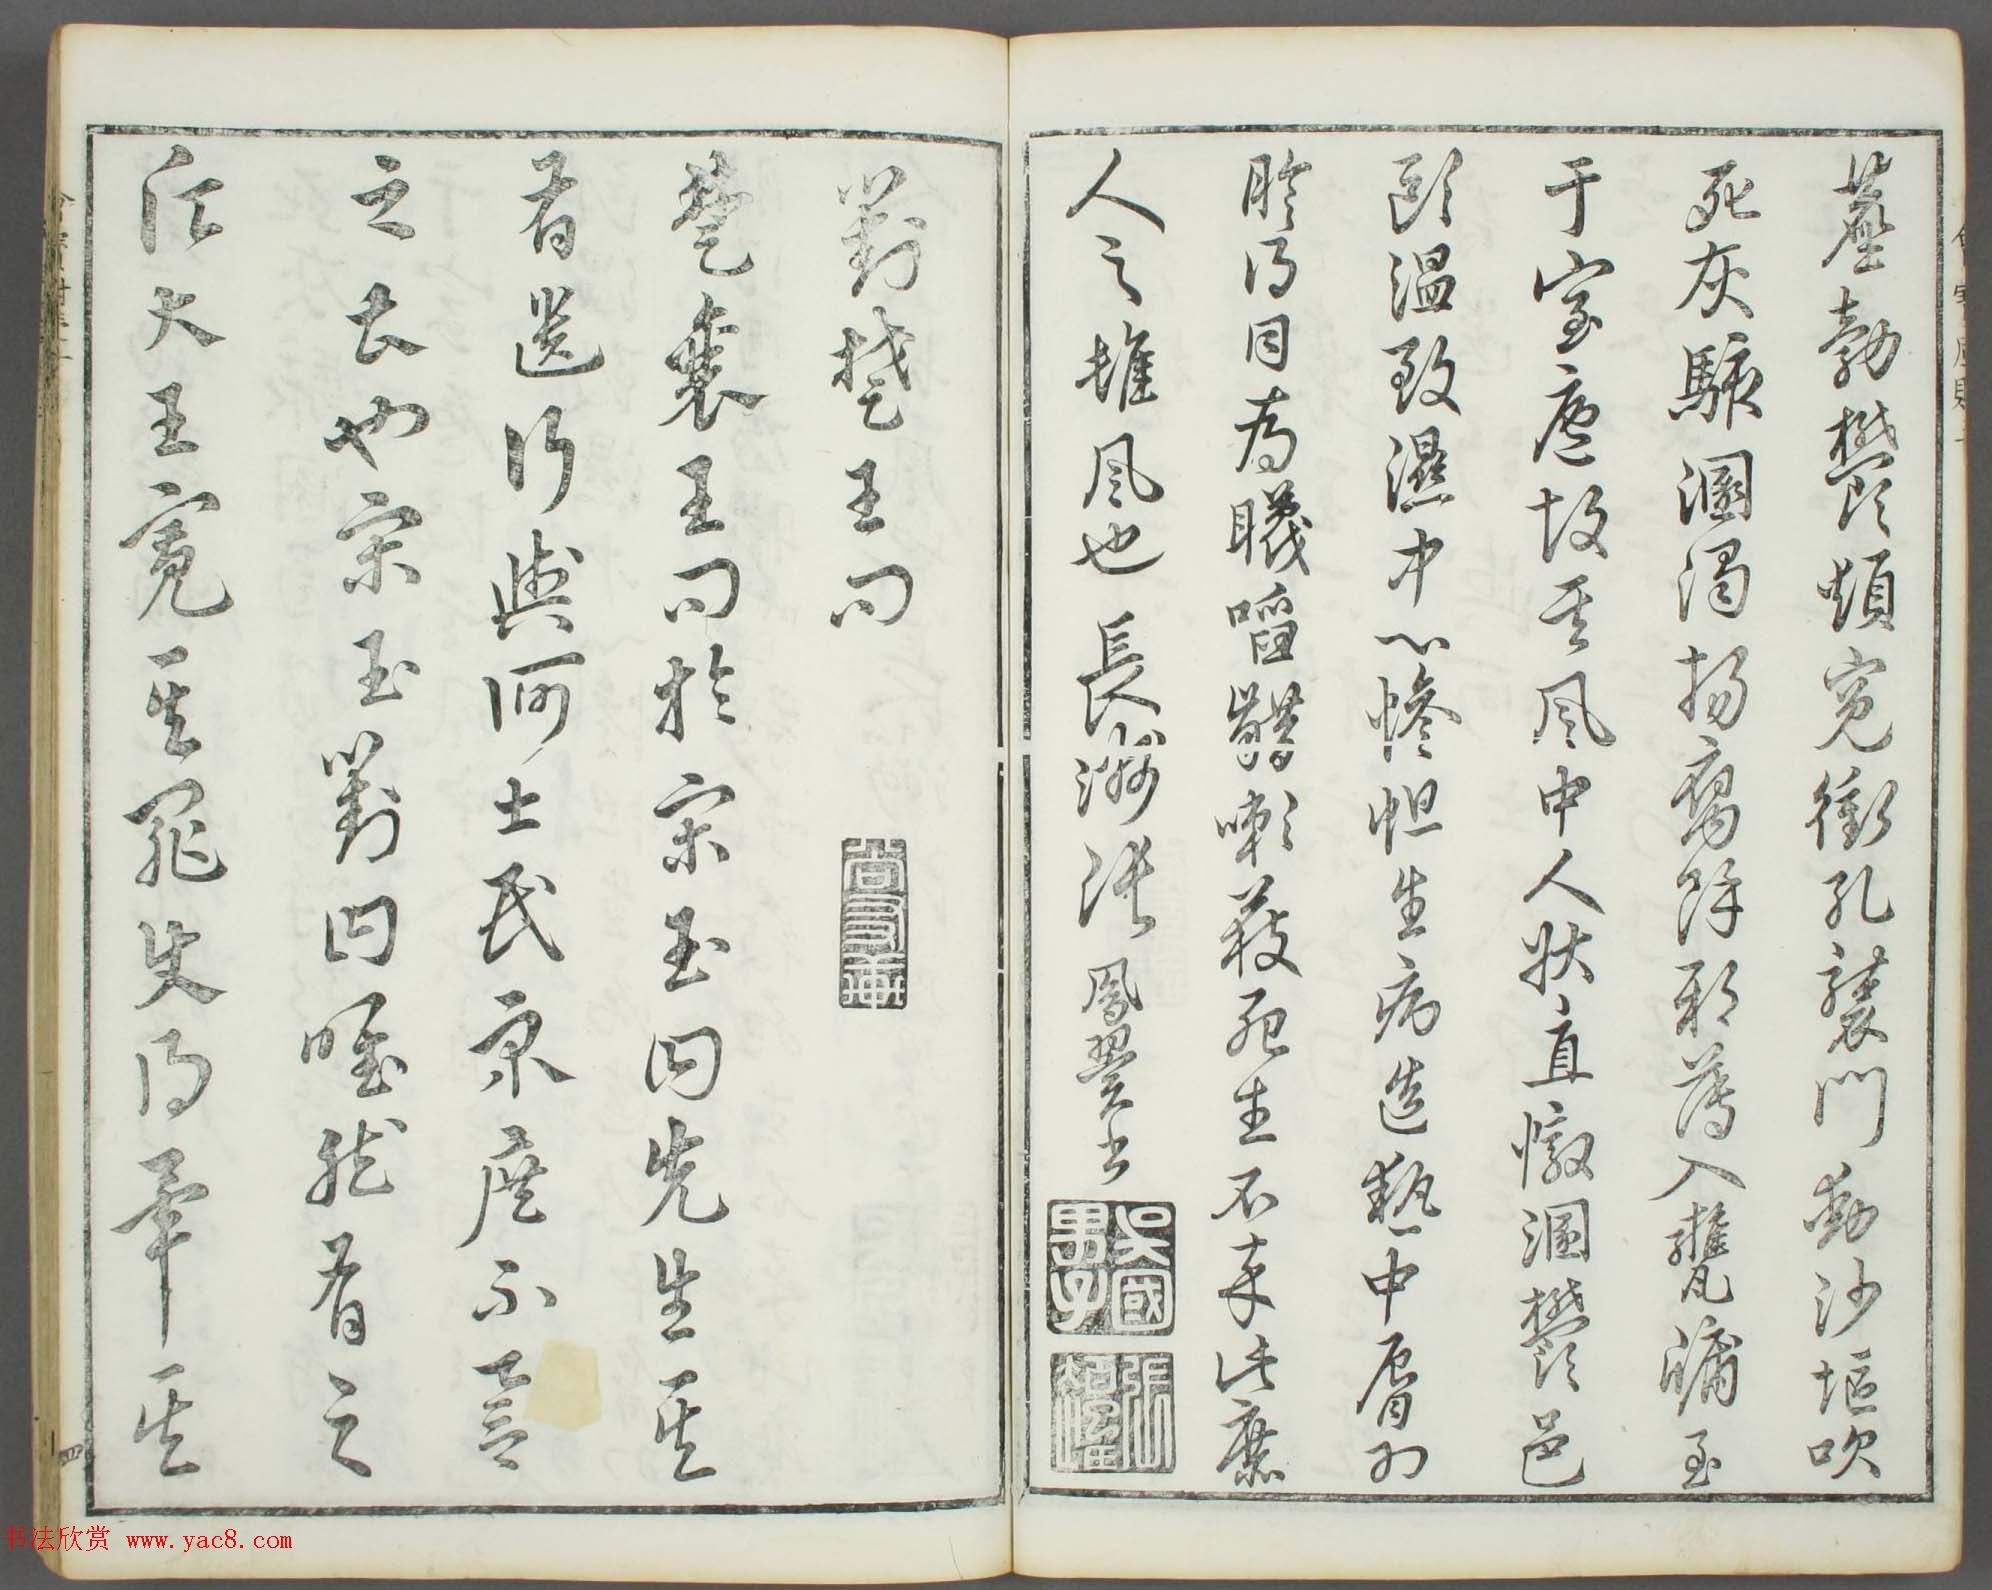 塵勃鬱煩寃衝孔襲門動沙堁吹
死灰駭溷濁揚腐餘邪薄入甕牖至
于室廬故其風中人狀直憞溷鬱邑
敺溫致濕中心慘怛生病造熱中脣為
胗得目為瞜啗齰嗽獲死生不卒此庶
人之雄風也長洲張鳳翼書
吳國男子
張
對楚王問
楚襄王問於宋玉曰先生其
有遺行與何士民眾庶不譽
之甚也宋玉對曰唯然有之
願大王寬其罪使得畢其
四
书法欣赏 www.yac8.com